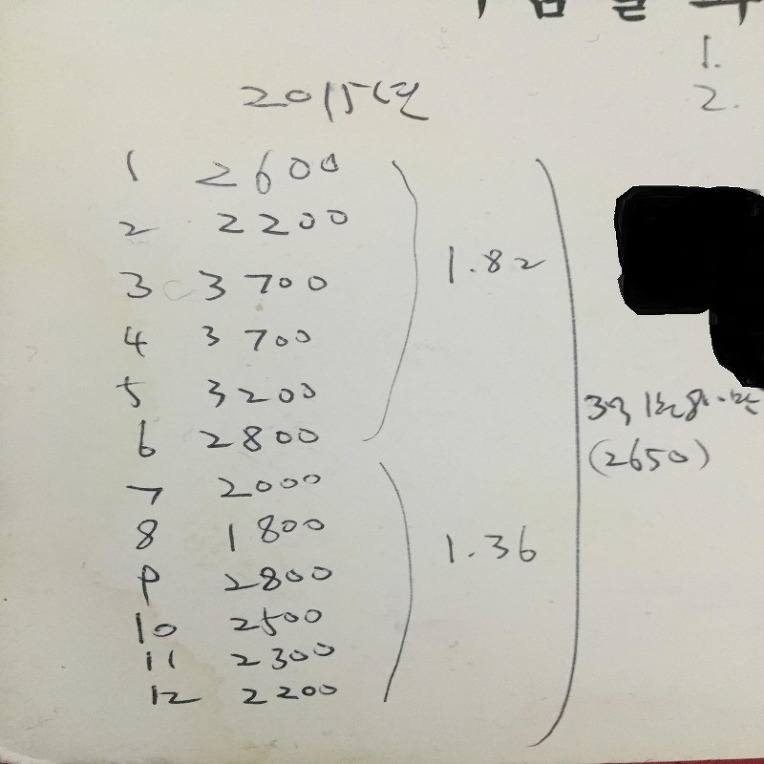 1.
2.
2015년
1 2600
2 2200
3 3700
4 3700
5 3200
6 2800
1.82
7 2000
8 1800
9 2800
10 2500
11 2300
12 2200
1.36
3억 1천8백만
(2650)